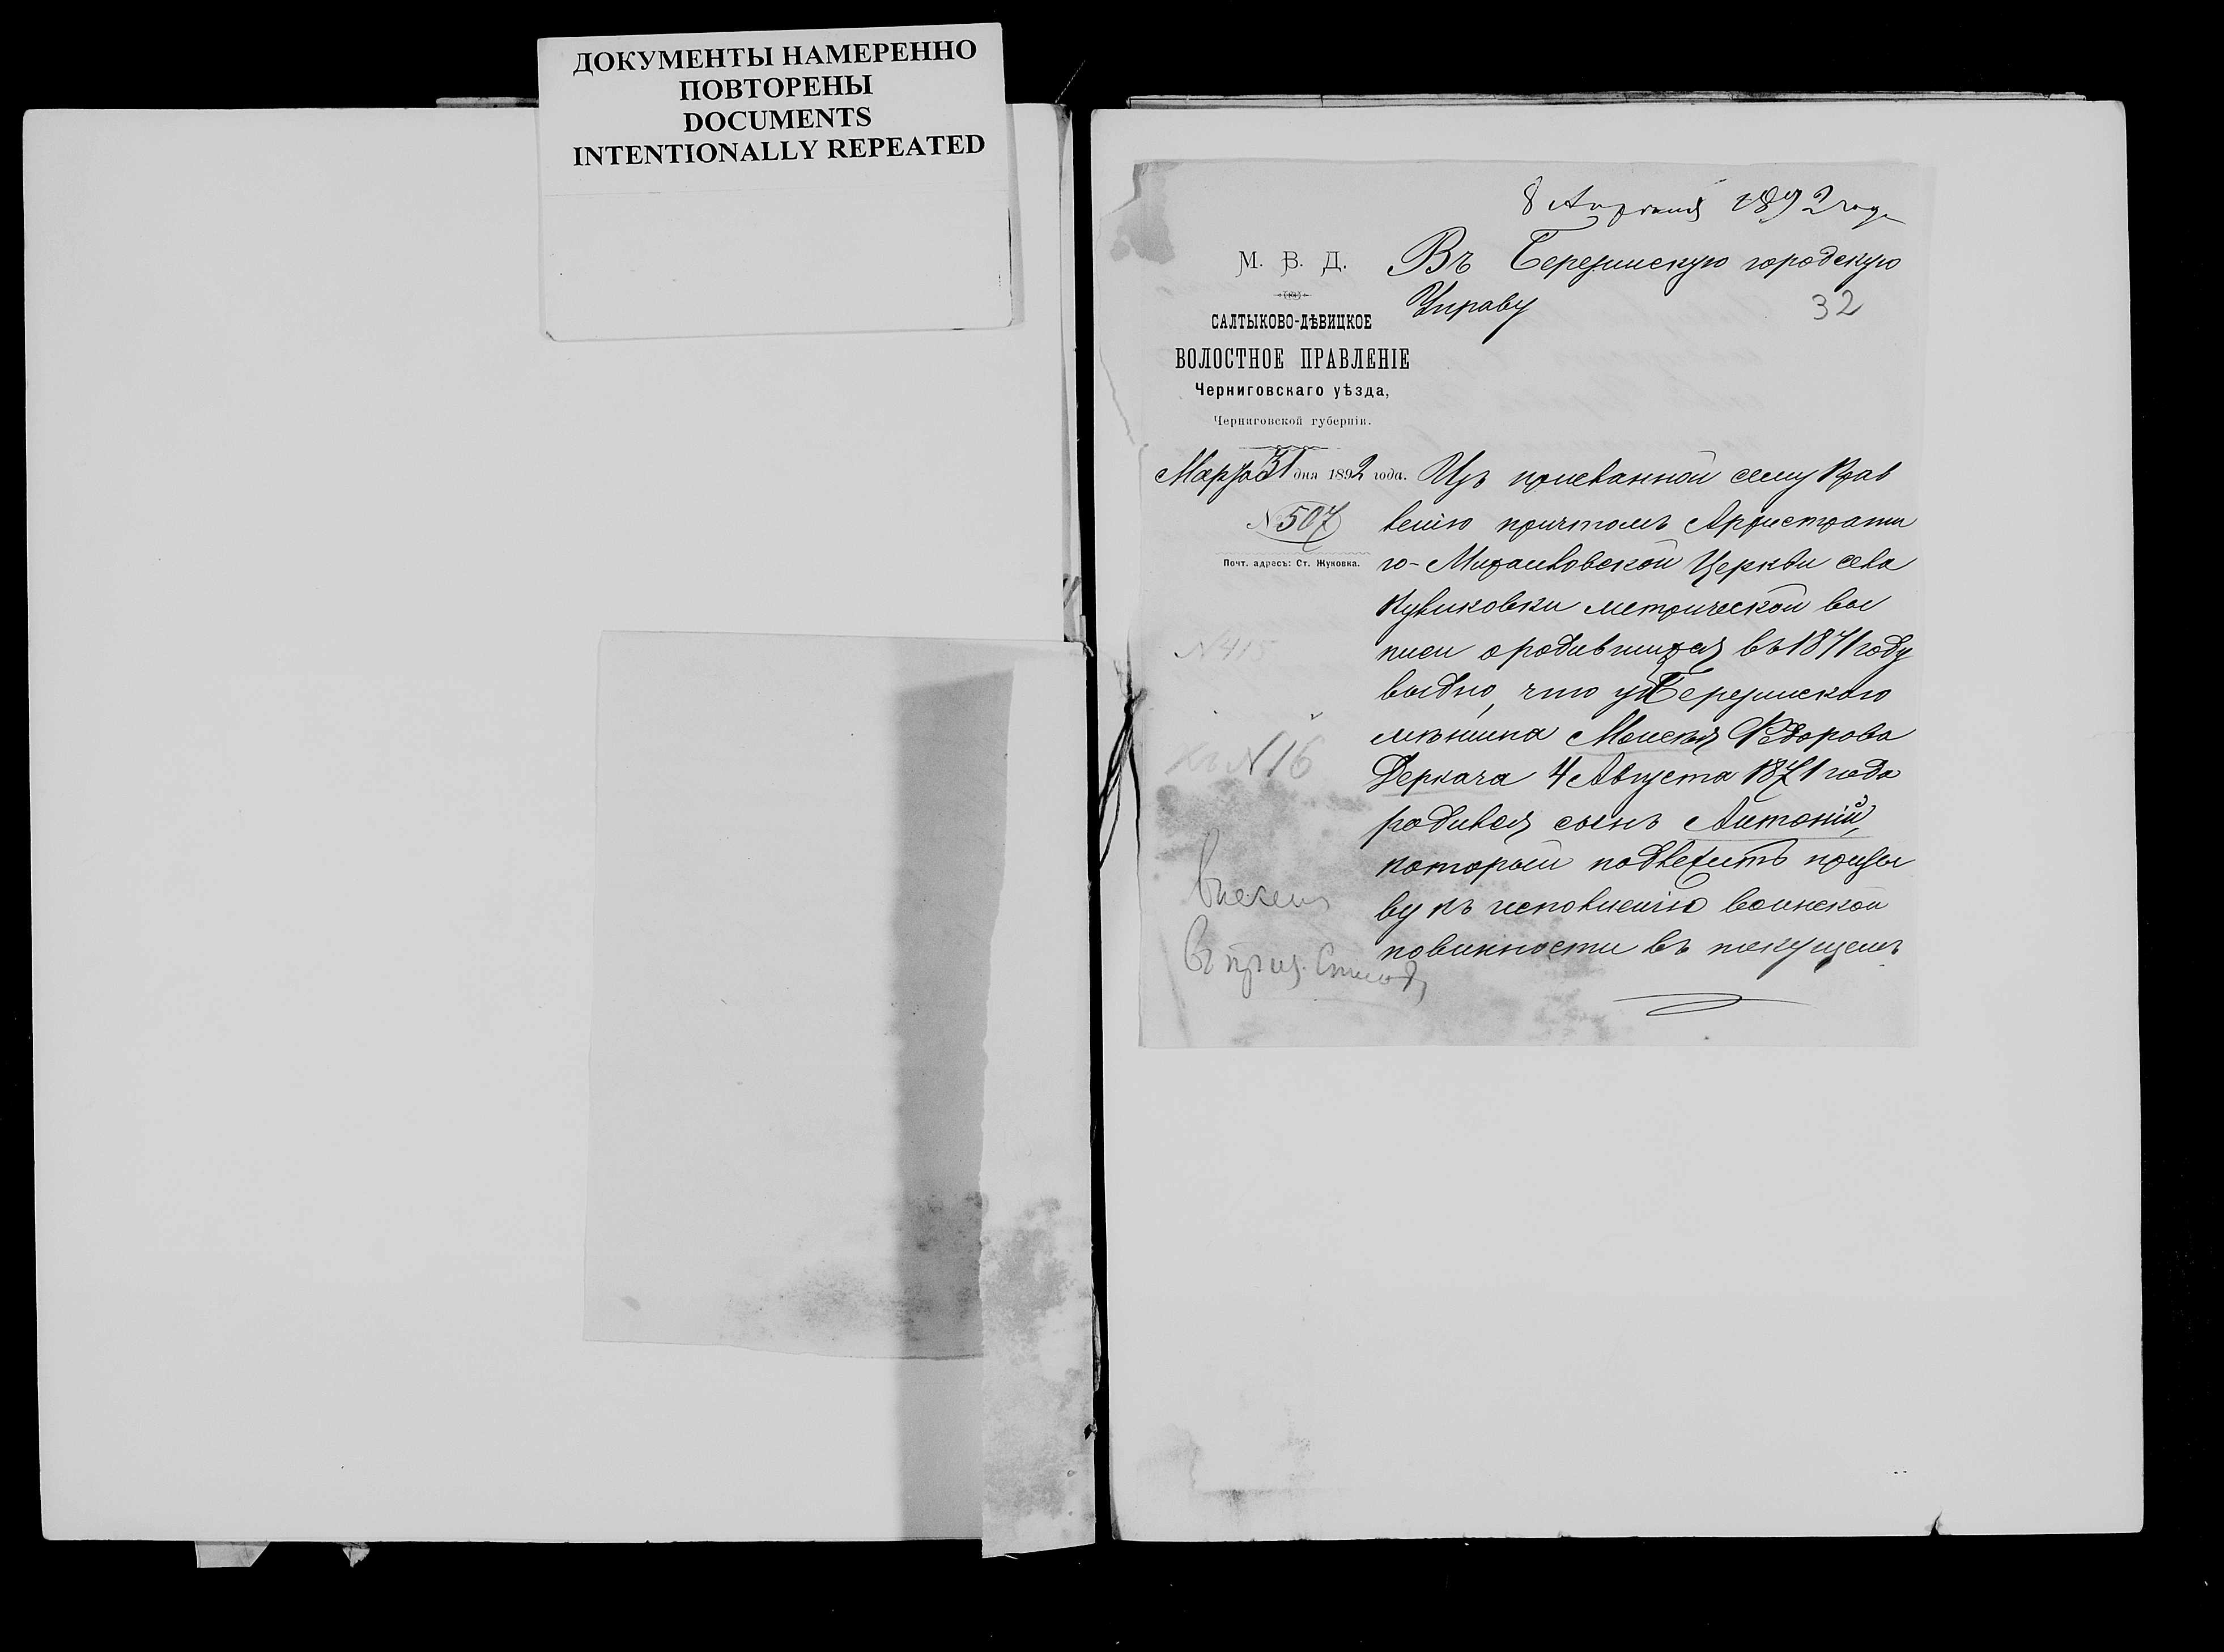 ДОКУМЕНТЫ НАМЕРЕННО
ПОВТОРЕНЫ
DOCUMENTS
INTENTIONALLY REPEATED
8 Апреля 1892 года
М. В. Д.
Въ Березинскую городскую
Управу
32
САЛТЫКОВО-ДѢВИЦКОЕ
ВОЛОСТНОЕ ПРАВЛЕНІЕ
Черниговскаго уѣзда,
Черниговской губерніи.
Марта 31 дня 1892 года.
№ 507
Почт. адресъ: Ст. Жуковка.
Изъ присланной сему Прав
ленію причтомъ Архистрати
го-Михайловской Церкви села
Куликовки метрической вы
писи о родившихся въ 1871 году
видно, что у Березинского
мѣщина Моисея Федорова
Деркача 4 Августа 1871 года
родился сынъ Антоній,
который подлежитъ призы
ву къ исполненію воинской
повинности въ текущемъ
N 415
N 16
Внесенъ
въ приз. Списокъ